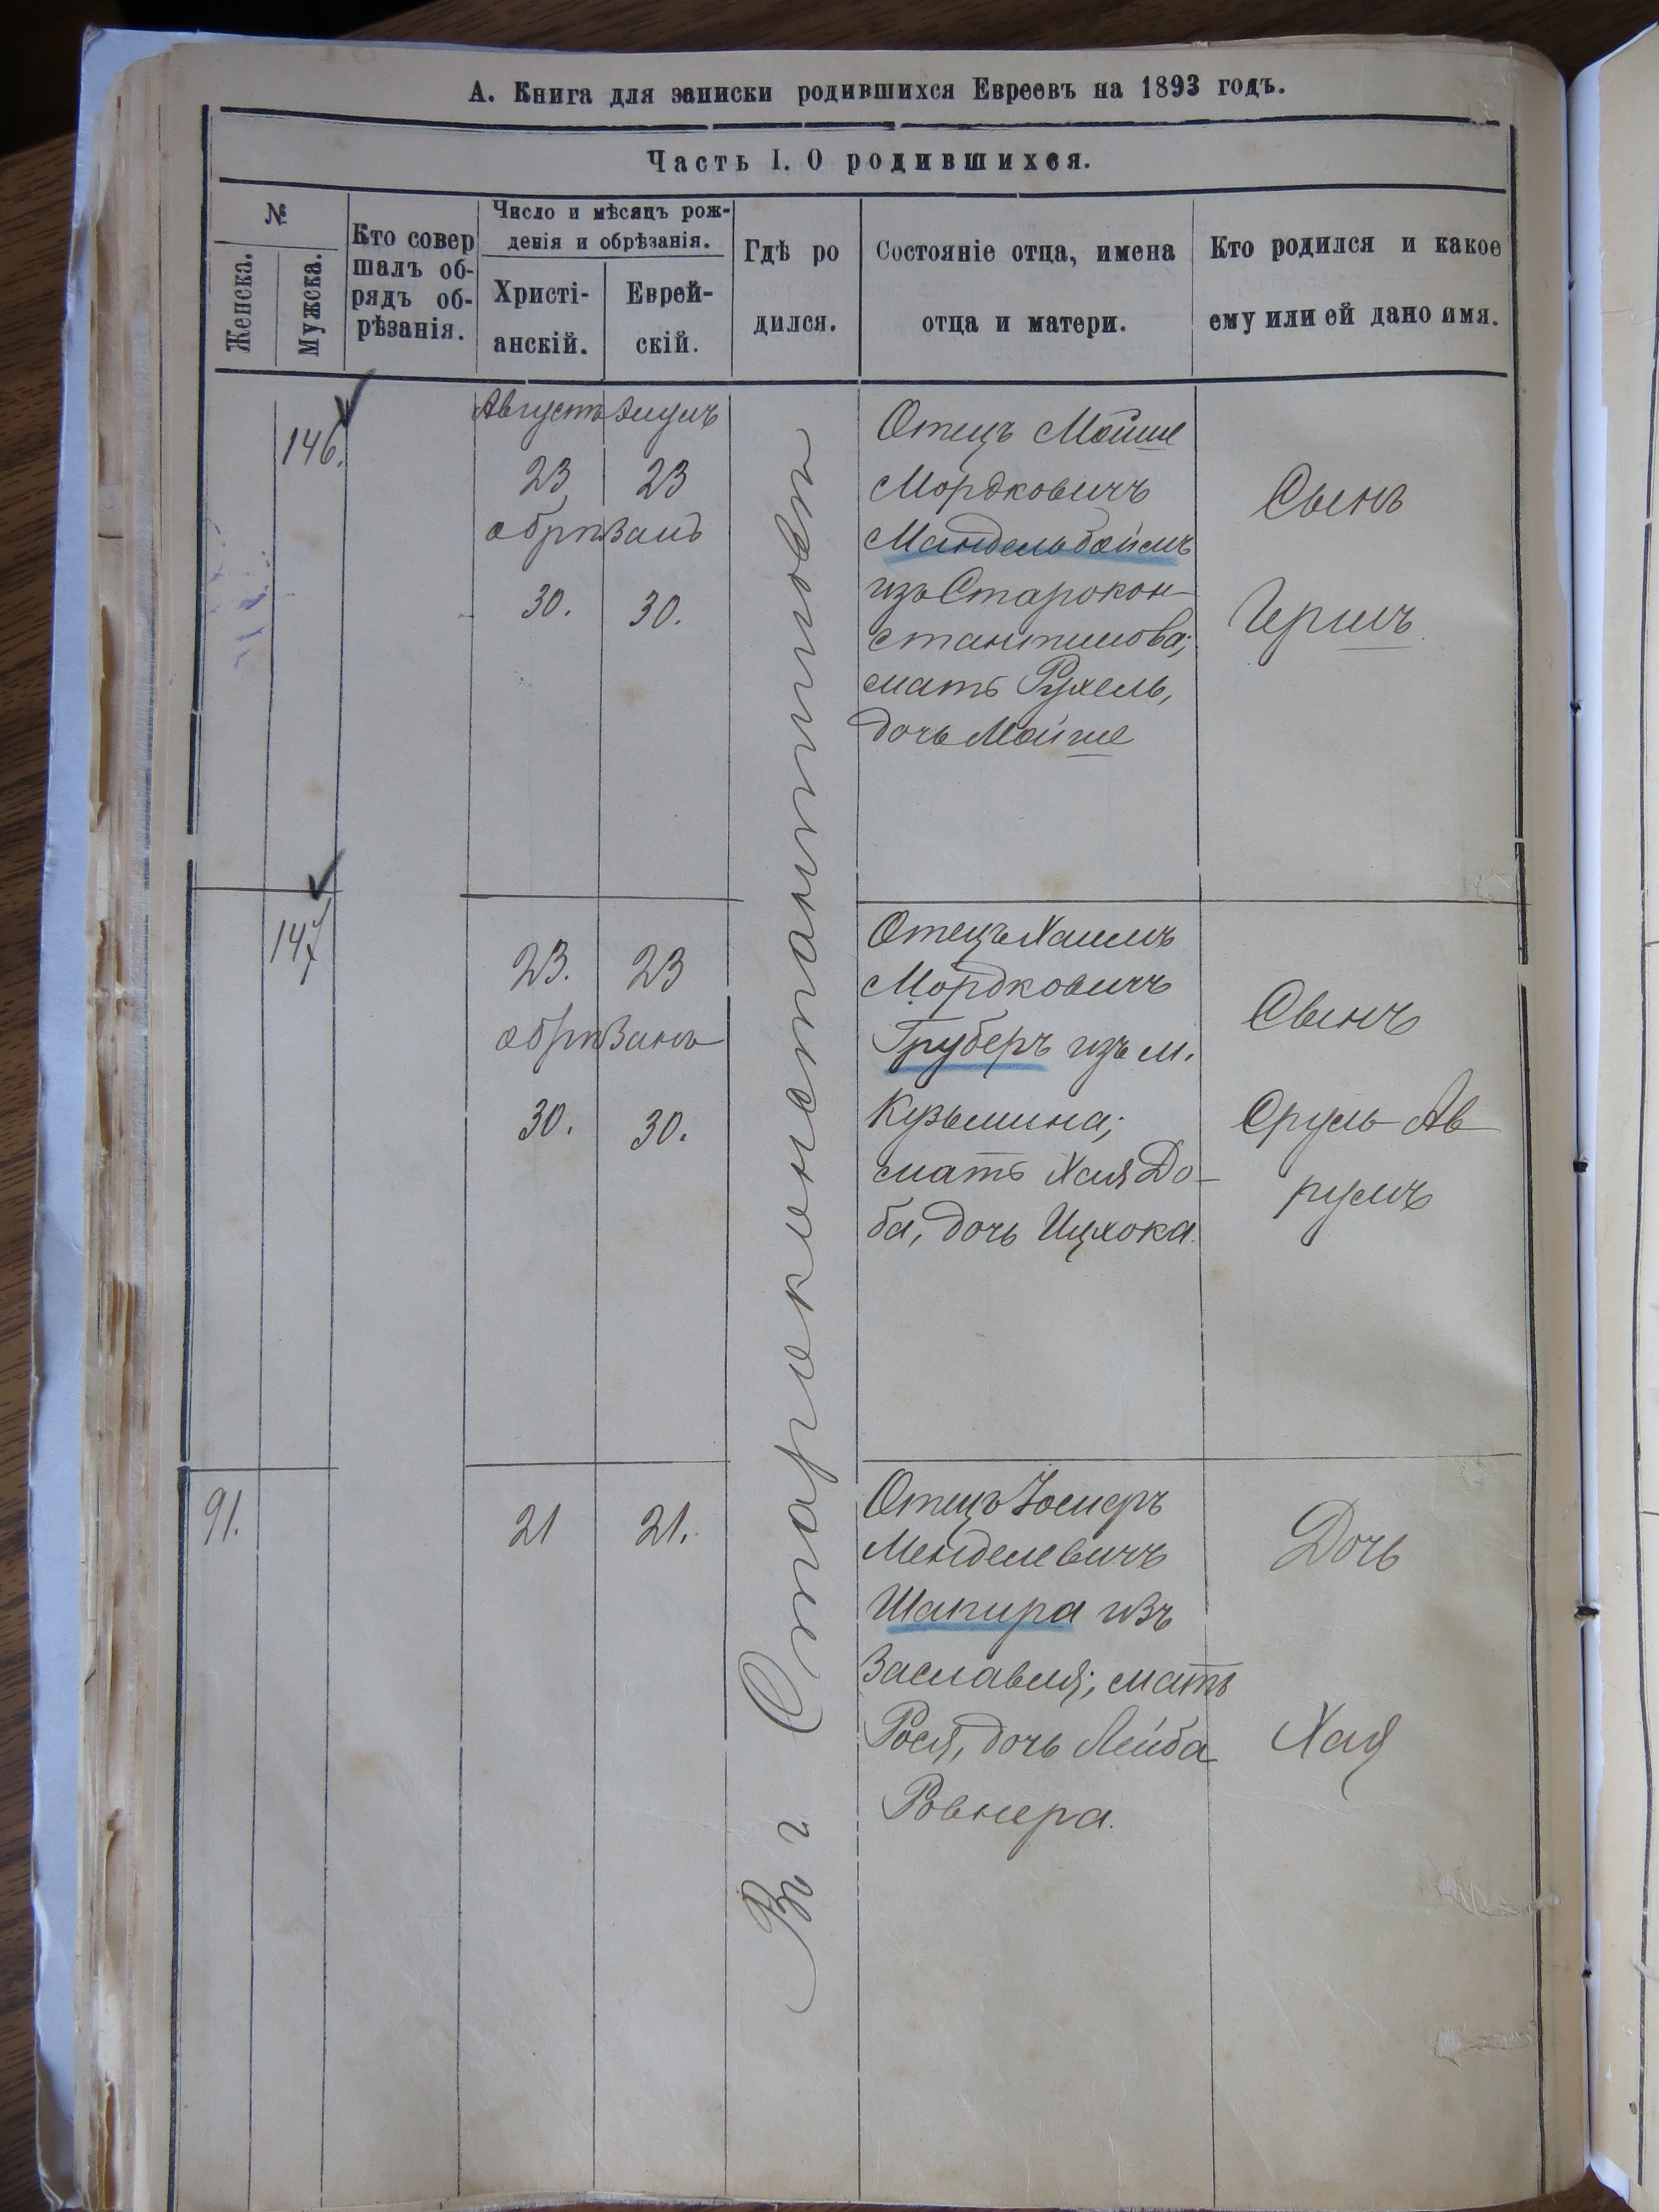 А. Книга для записки родившихся Евреевъ на 1893 годъ.
Часть I. О родившихся.
№
Женска.
Мужска.
Кто совер
шалъ об-
рядъ об-
рѣзанія.
Число и мѣсяцъ рож-
денія и обрѣзанія.
Христі-
анскій.
Еврей-
скій.
Гдѣ ро
дился.
Состояніе отца, имена
отца и матери.
Кто родился и какое
ему или ей дано имя.
146.
Августъ Элулъ
23 23
обрѣзанъ
30. 30.
Въ г Староконстантиновѣ
Отецъ Мойше
Мордковичъ
Мандельбоймъ
изъ Старокон-
стантинова;
мать Рухель,
дочь Мойше
Сынъ
Гершъ.
147
23. 23
обрѣзанъ
30. 30.
Отецъ Хаимъ
Мордковичъ
Груберъ изъ м.
Кузьмина;
мать Хая До-
ба, дочь Ицхока.
Сынъ
Сруль-Ав
румъ
91.
21 21.
Отецъ Іосифъ
Менделевичъ
Шапира изъ
Заславля; мать
Рося, дочь Лейба
Ровнера.
Дочь
Хая